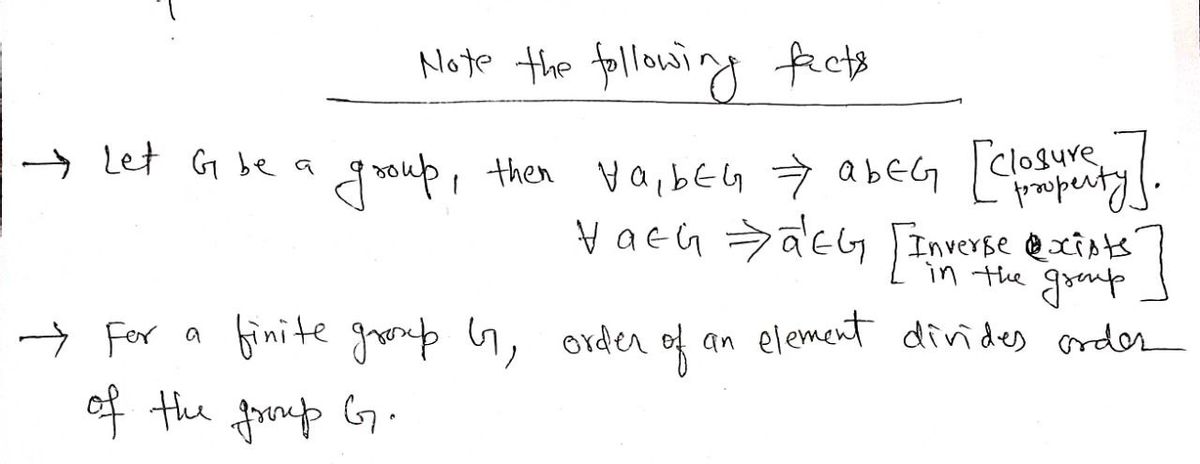 Note the following facts
→ Let G be a group, then ∀a,b∈G ⇒ ab∈G [closure property].
∀ a∈G ⇒ a⁻¹∈G [Inverse exists in the group]
→ For a finite group G, order of an element divides order
of the group G.